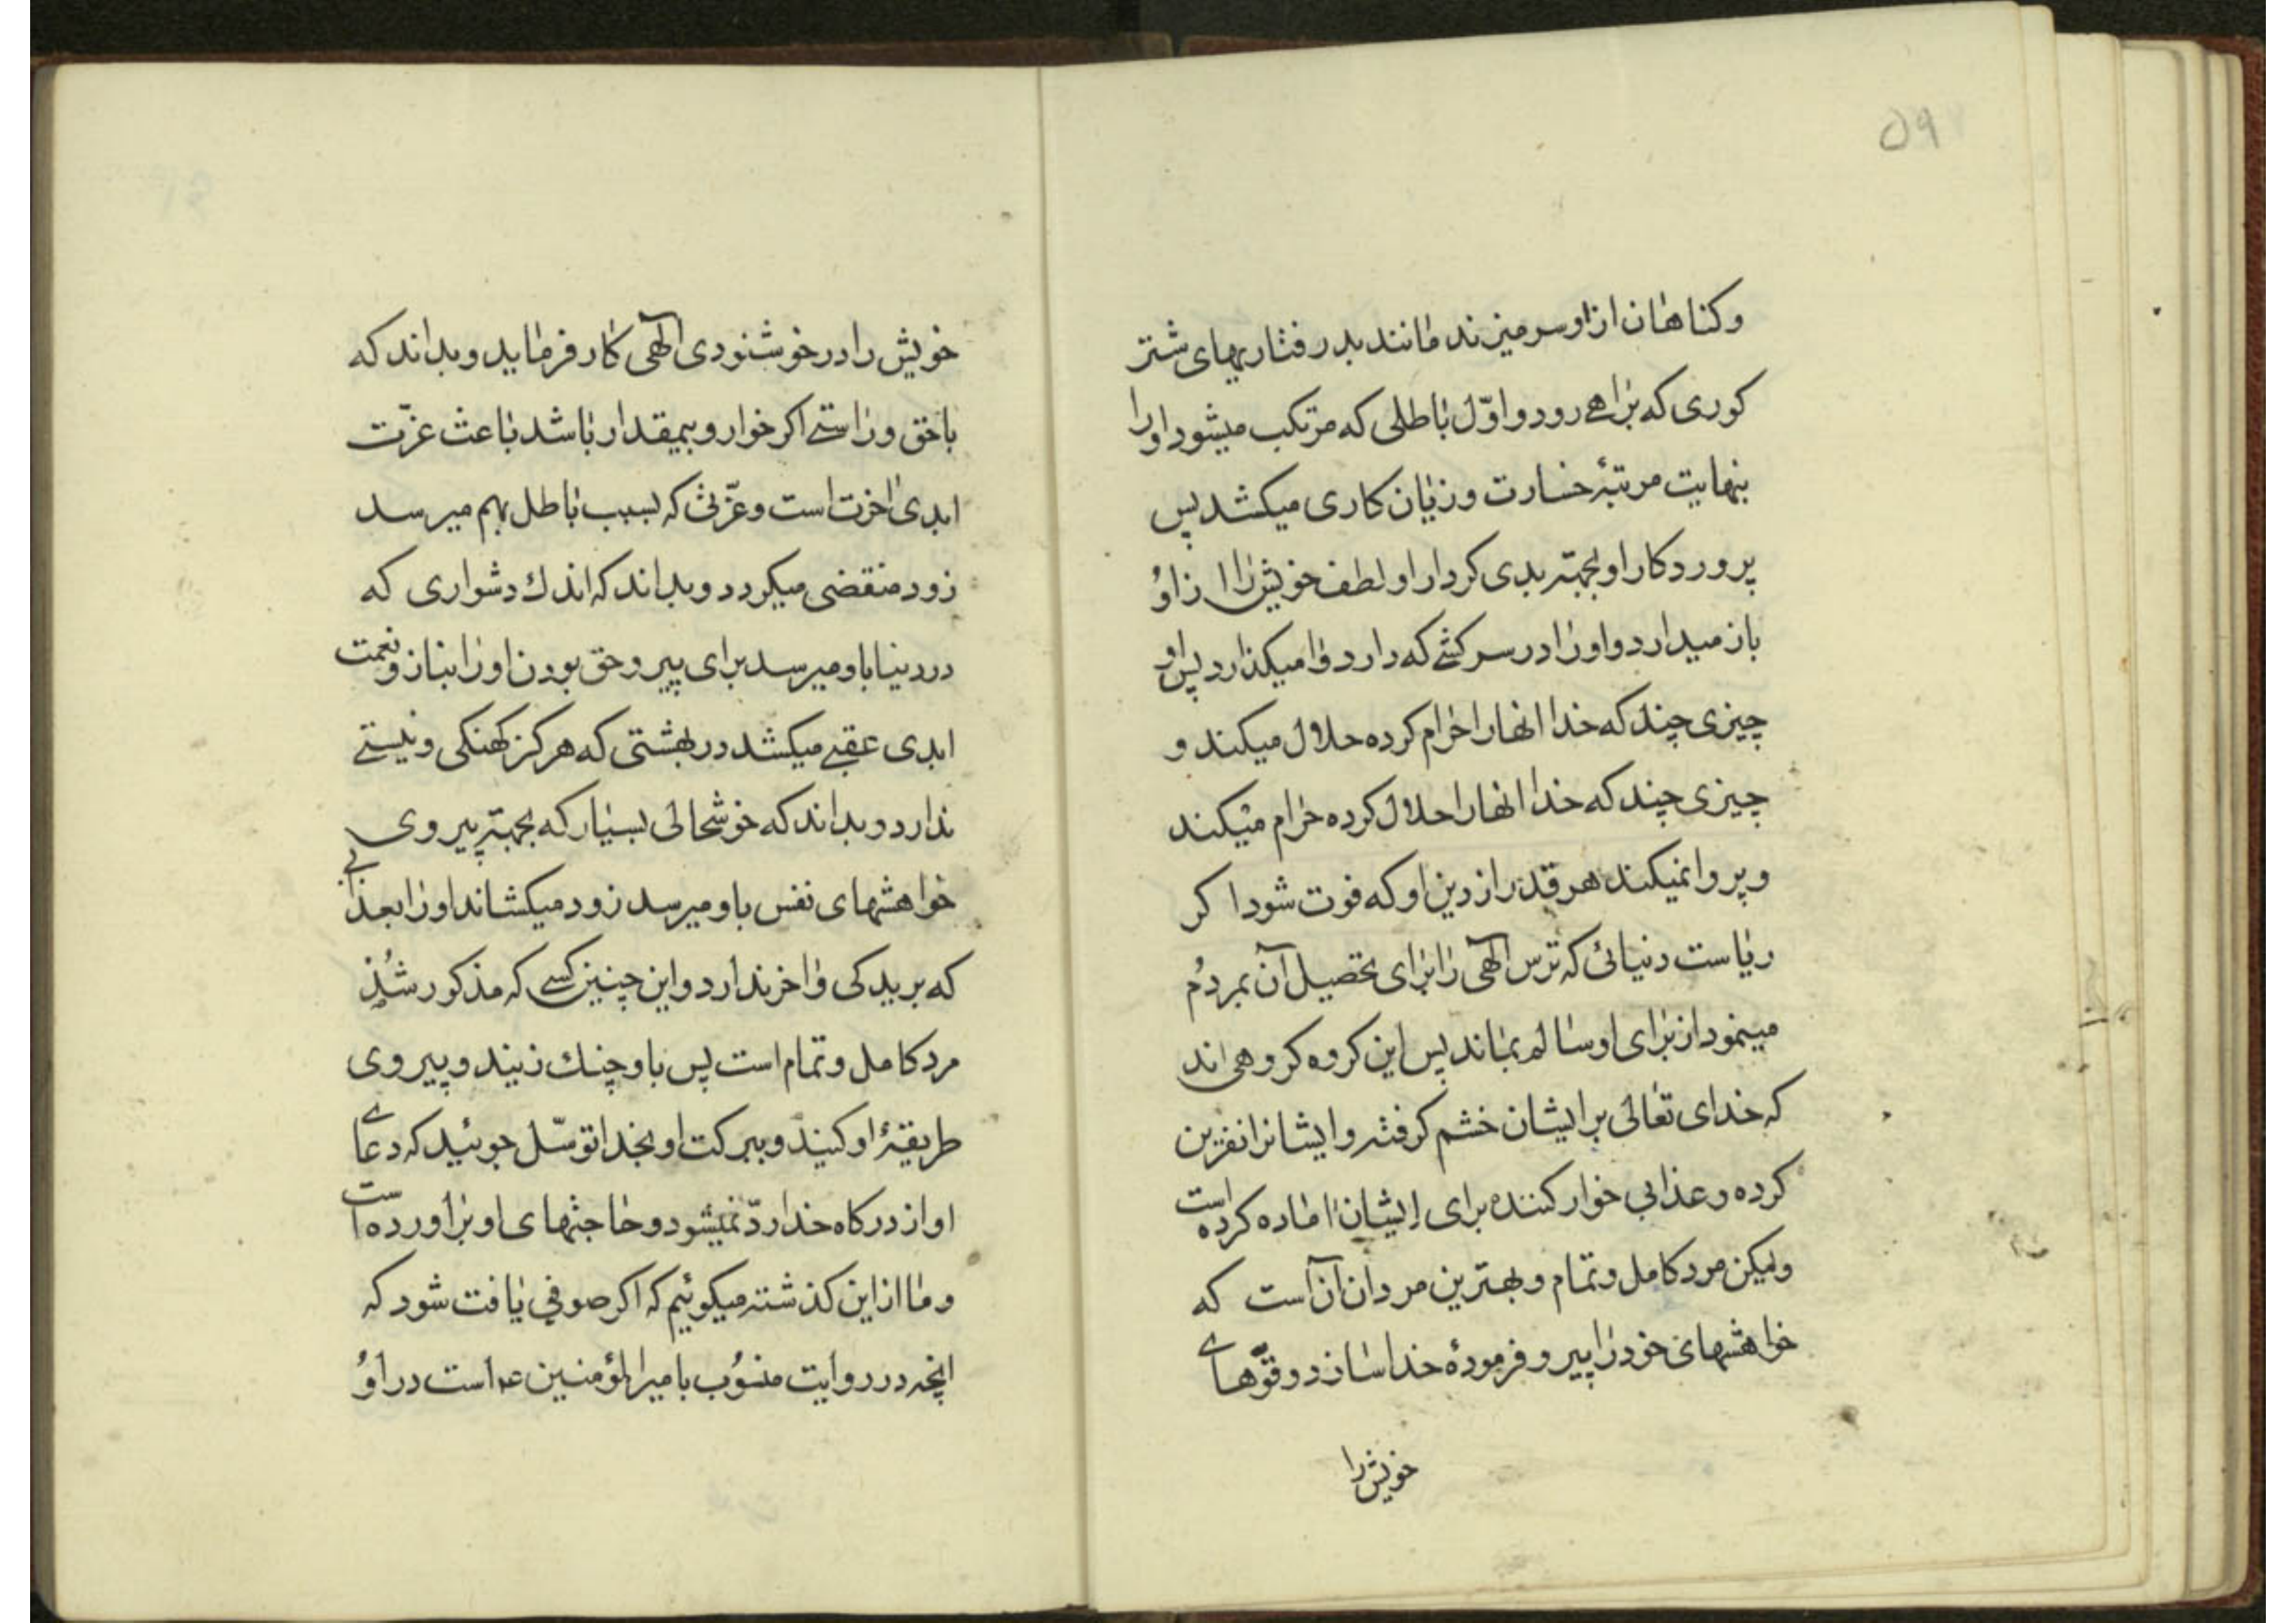 ۵۹
وکناهان ازاو سر میزند مانند بد رفتاریهای شتر
کوری که براهی رود و اوّل باطلی که مرتکب میشود اورا
بنهایت مرتبهٔ خسارت و زیان کاری میکشد پس
پروردکار او بجهتر بدی کردار او لطف خویش را از او
باز میدارد و اورا در سرکشی که دارد وا میکذارد پس او
چیزی چند که خدا انهارا حرام کرده حلال میکند و
چیزی چند که خدا انهارا حلال کرده حرام میکند
و پروا نمیکند هر قدر از دین او که فوت شود اکر
ریاست دنیائی که ترس الٓهی را برای تحصیل آن بمردم
مینمود از برای او سالم بماند پس این کروه کروهی اند
که خدای تعالی بر ایشان خشم کرفته و ایشانرا نفرین
کرده و عذابی خوار کننده برای ایشان اماده کرده است
ولیکن مرد کامل و تمام و بهترین مردان آن است که
خواهشهای خود را پیرو فرمودهٔ خدا سازد و قوّهای
خویش را
خویش را در خوشنودی الٓهی کار فرماید و بداند که
با حق و راستی اکر خوار و بیمقدار باشد باعث عزّت
ابدی اخرت است و عزّتی که بسبب باطل بهم میرسد
زود منقضی میکردد و بداند که اندك دشواری که
در دنیا باو میرسد برای پیرو حق بودن اورا بناز و نعمت
ابدی عقبی میکشد در بهشتی که هرکز کهنکی و نیستی
ندارد و بداند که خوشحالی بسیار که بجهتر پیروی
خواهشهای نفس باو میرسد زود میکشاند اورا بعذابی
که بریدکی و اخر ندارد و این چنین کسی که مذکور شد
مرد کامل و تمام است پس باو چنك زنید و پیروی
طریقهٔ او کنید و ببرکت او بخدا توسّل جوئید که دعای
او از درکاه خدا ردّ نمیشود و حاجتهای او براورده است
و ما از این کذشته میکوئیم که اکر صوفی یافت شود که
انچه در روایت منسوب بامیرالمؤمنین عم است در او